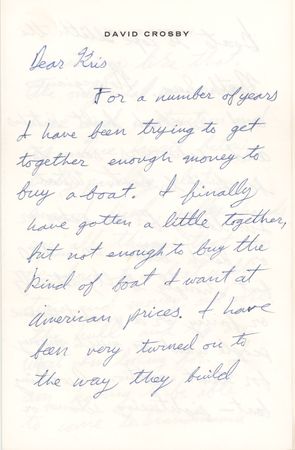 DAVID CROSBY
Dear Kris
For a number of years
I have been trying to get
together enough money to
buy a boat. I finally
have gotten a little together,
but not enough to buy the
kind of boat I want at
American prices. I have
been very turned on to
the way they build